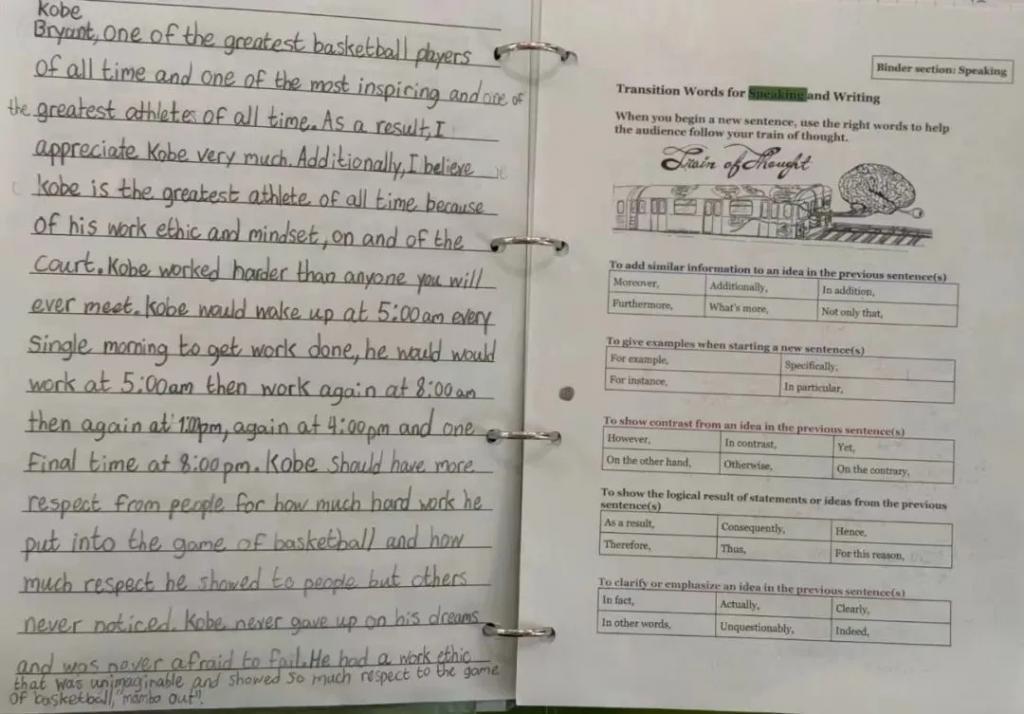 Kobe
Bryant, one of the greatest basketball players
of all time and one of the most inspiring and one of
the greatest athletes of all time. As a result, I
appreciate Kobe very much. Additionally, I believe
Kobe is the greatest athlete of all time because
of his work ethic and mindset, on and of the
court. Kobe worked harder than anyone you will
ever meet. Kobe would wake up at 5:00am every
single morning to get work done, he would would
work at 5:00am then work again at 8:00am
then again at 1:00pm, again at 4:00pm and one
final time at 8:00pm. Kobe should have more
respect from people for how much hard work he
put into the game of basketball and how
much respect he showed to people but others
never noticed. Kobe never gave up on his dreams
and was never afraid to fail. He had a work ethic
that was unimaginable and showed so much respect to the game
of basketball, "mamba out".
Binder section: Speaking
Transition Words for Speaking and Writing
When you begin a new sentence, use the right words to help
the audience follow your train of thought.
Train of Thought
To add similar information to an idea in the previous sentence(s)
Moreover, Additionally, In addition,
Furthermore, What's more, Not only that,
To give examples when starting a new sentence(s)
For example, Specifically,
For instance, In particular,
To show contrast from an idea in the previous sentence(s)
However, In contrast, Yet,
On the other hand, Otherwise, On the contrary,
To show the logical result of statements or ideas from the previous
sentence(s)
As a result, Consequently, Hence,
Therefore, Thus, For this reason,
To clarify or emphasize an idea in the previous sentence(s)
In fact, Actually, Clearly,
In other words, Unquestionably, Indeed,